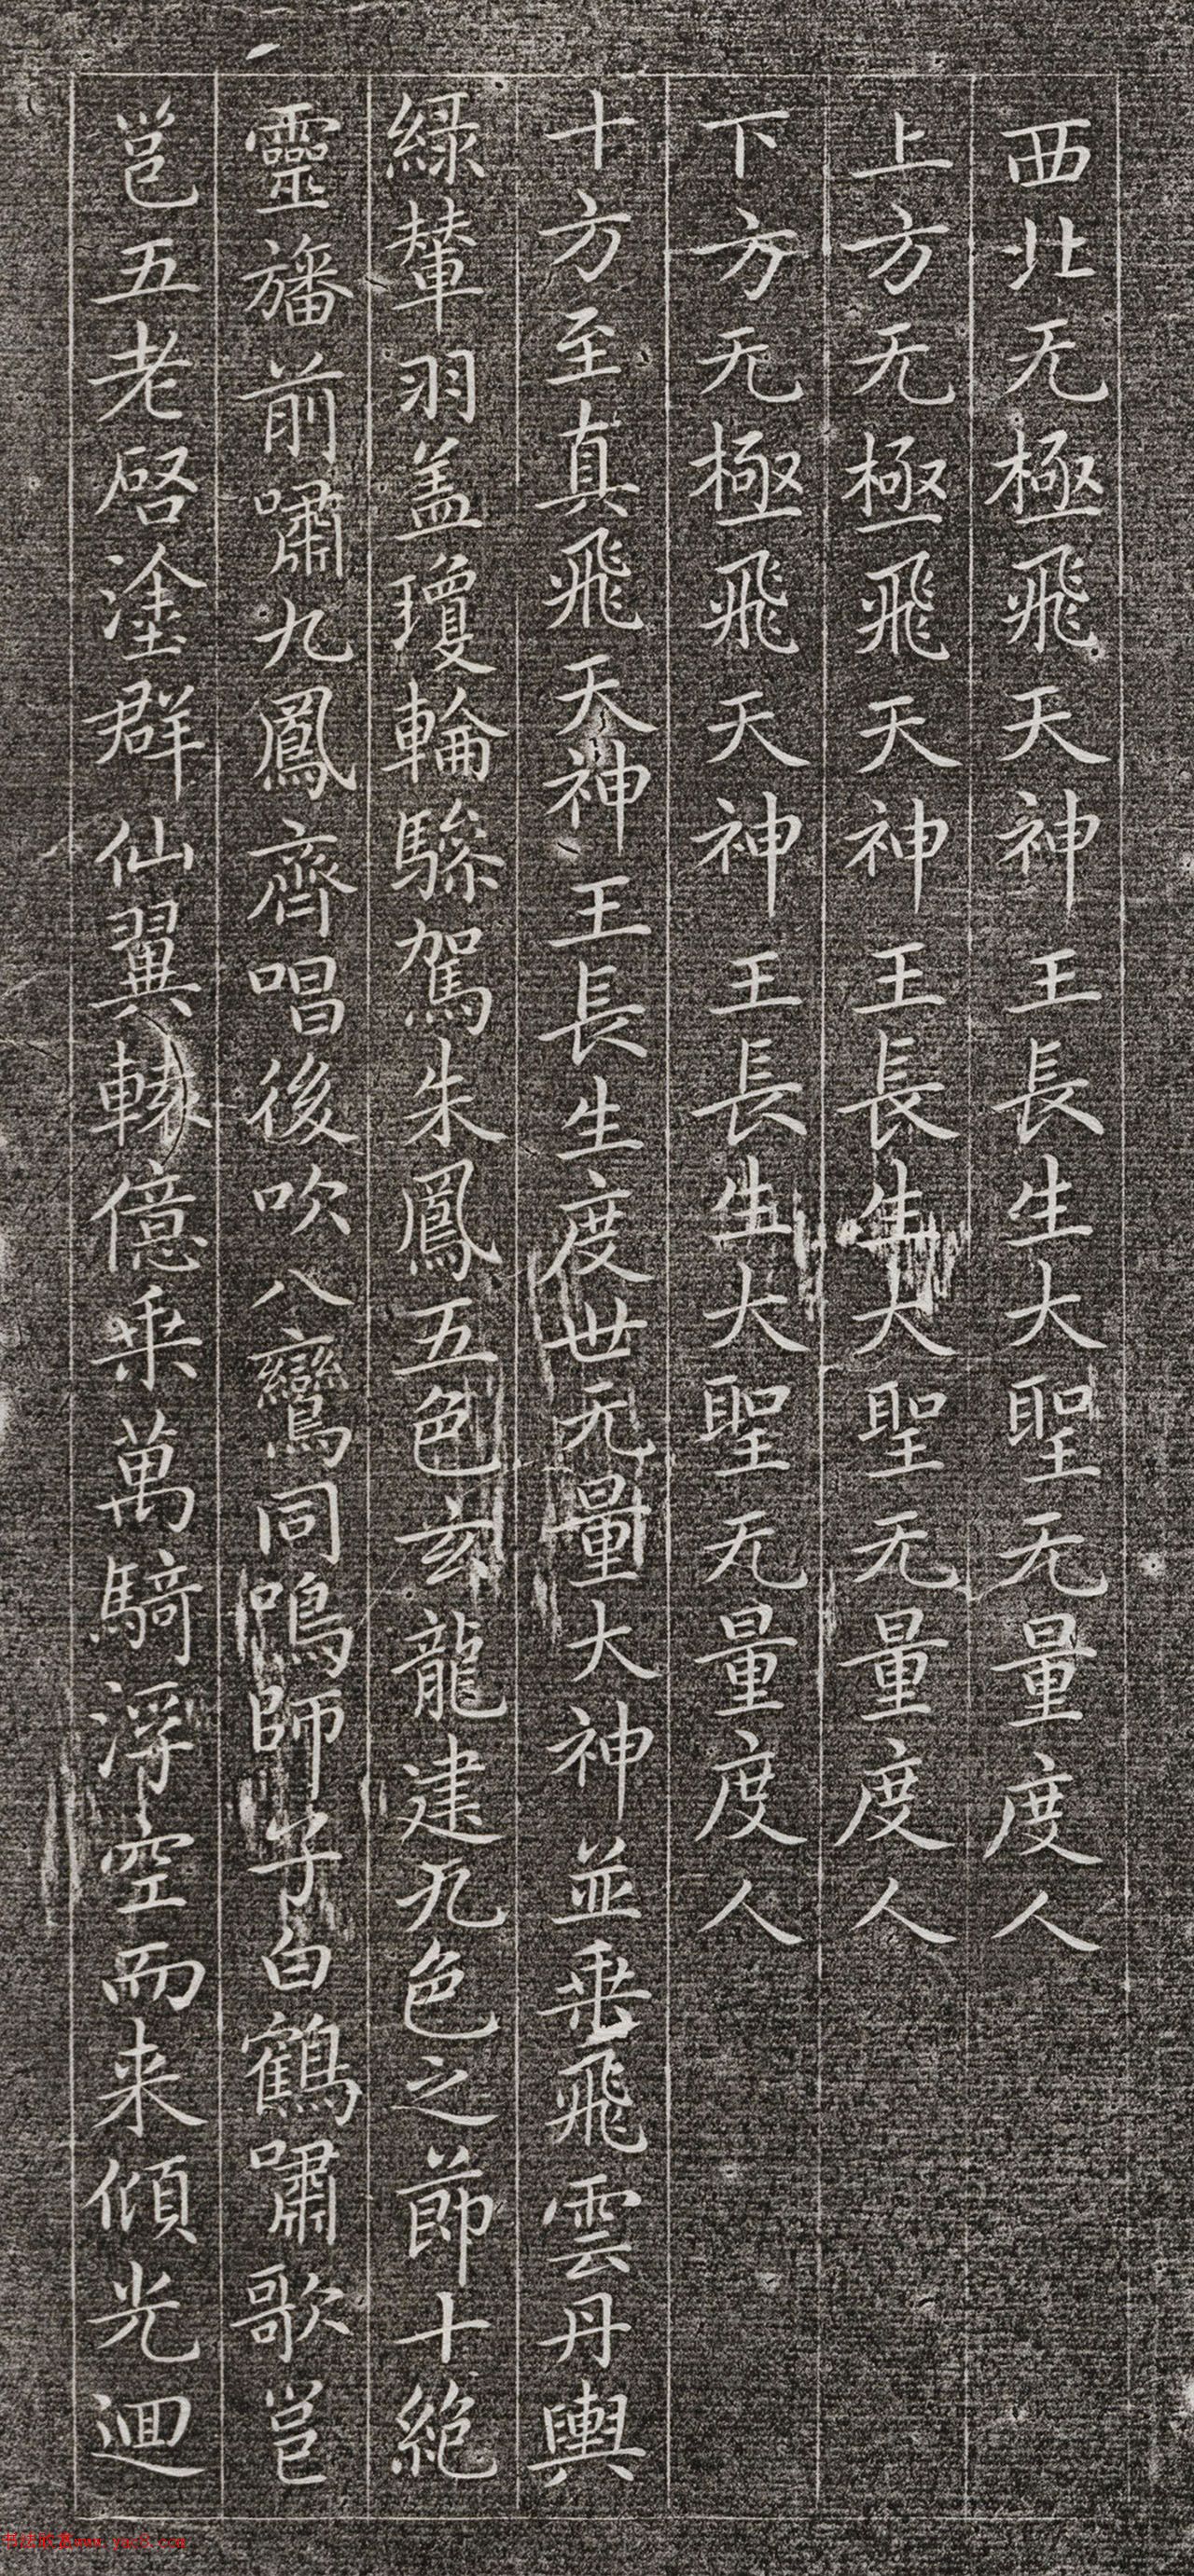 西北无極飛天神王長生大聖无量度人
上方无極飛天神王長生大聖无量度人
下方无極飛天神王長生大聖无量度人
十方至真飛天神王長生度世无量大神並乗飛雲丹輿
緑輦羽盖瓊輪驂駕朱鳳五色玄龍建九色之節十絶
靈旛前嘯九鳳齊唱後吹八鸞同鳴師子白鶴嘯歌邕
邕五老啓塗群仙翼轅億乗萬騎浮空而来傾光迴
www.yac8.com